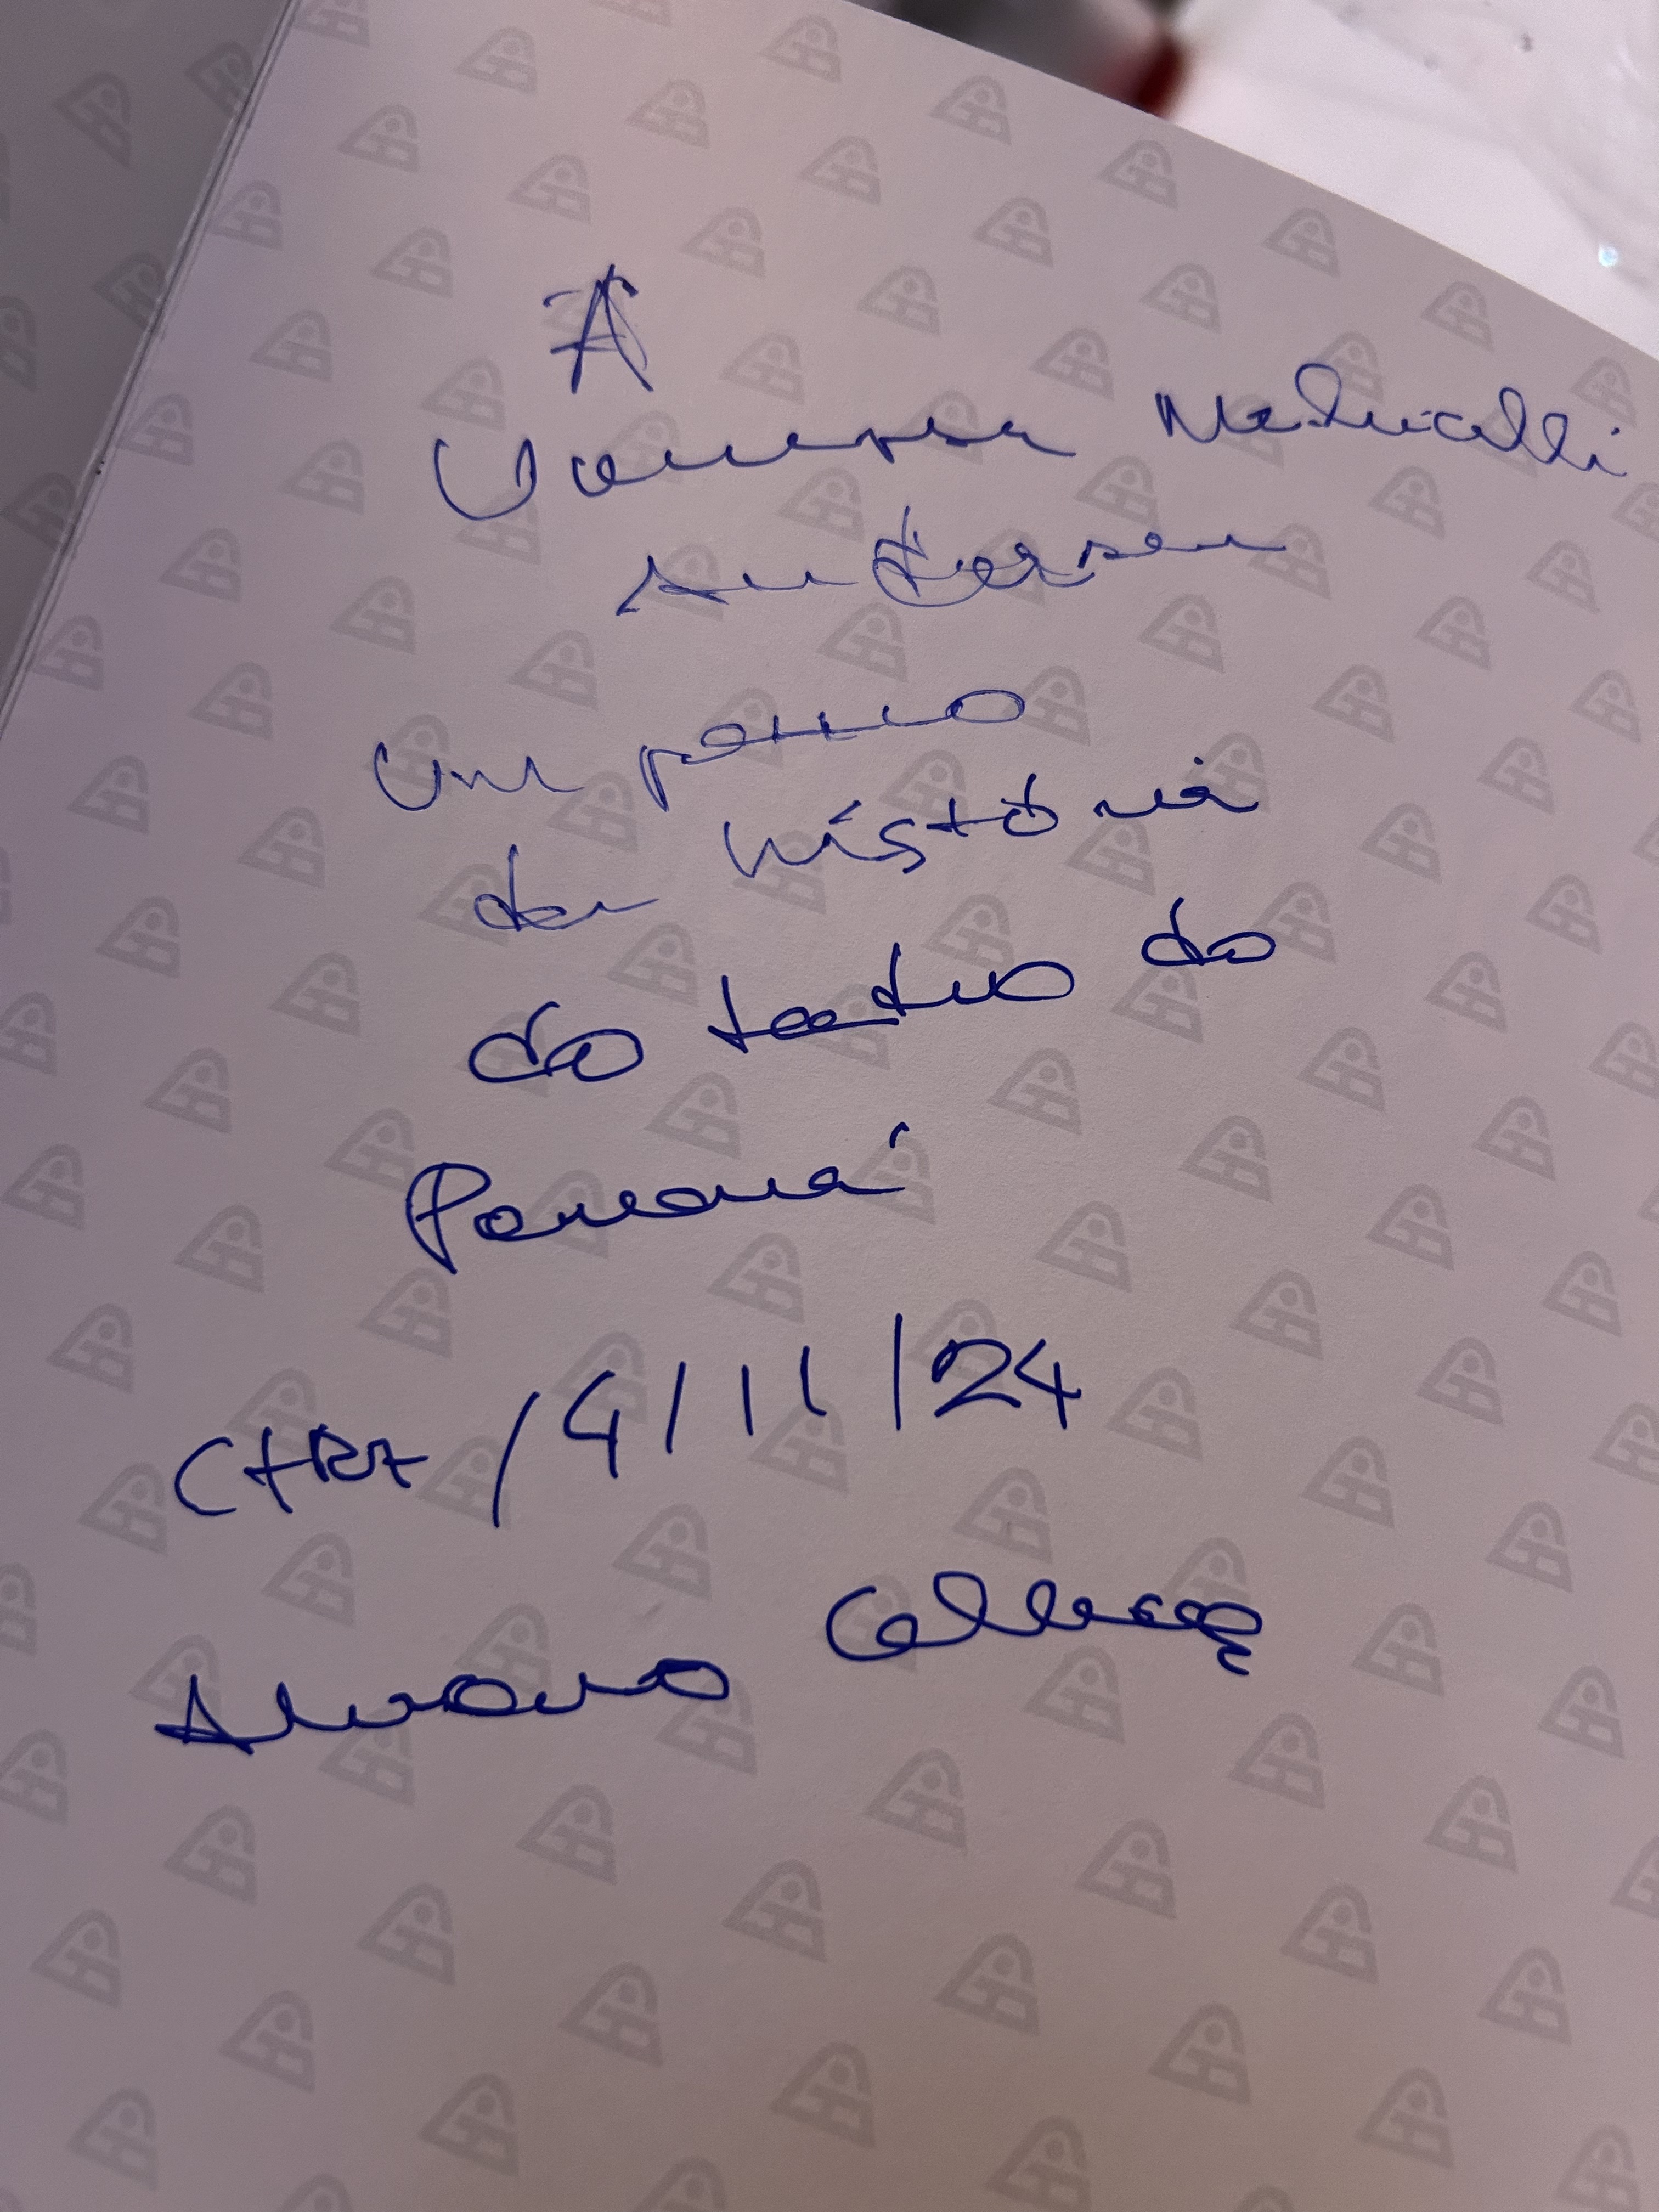 À
Vanessa Malucelli
Andersen
um pouco
da história
do teatro do
Paraná
CTBA / 4 / 11 / 24
Alvaro Collaço